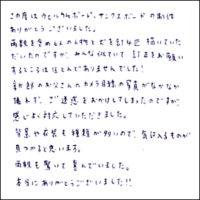 この度はウェルカムボード、サンクスボードの制作
ありがとうございました。
両親を含め6人の人物と犬を計4匹 描いていた
だいたのですが、みんな似ていて 訂正をお願い
するところはほとんどありませんでした!
新郎のお父さんのカメラ目線の写真がなかなか
撮れず、ご迷惑をおかけしてしまったのですが、
感じよく対応していただきました。
背景や衣装も種類が多いので、気に入るものが
見つかると思います。
両親も驚いて喜んでいました。
本当にありがとうございました!!